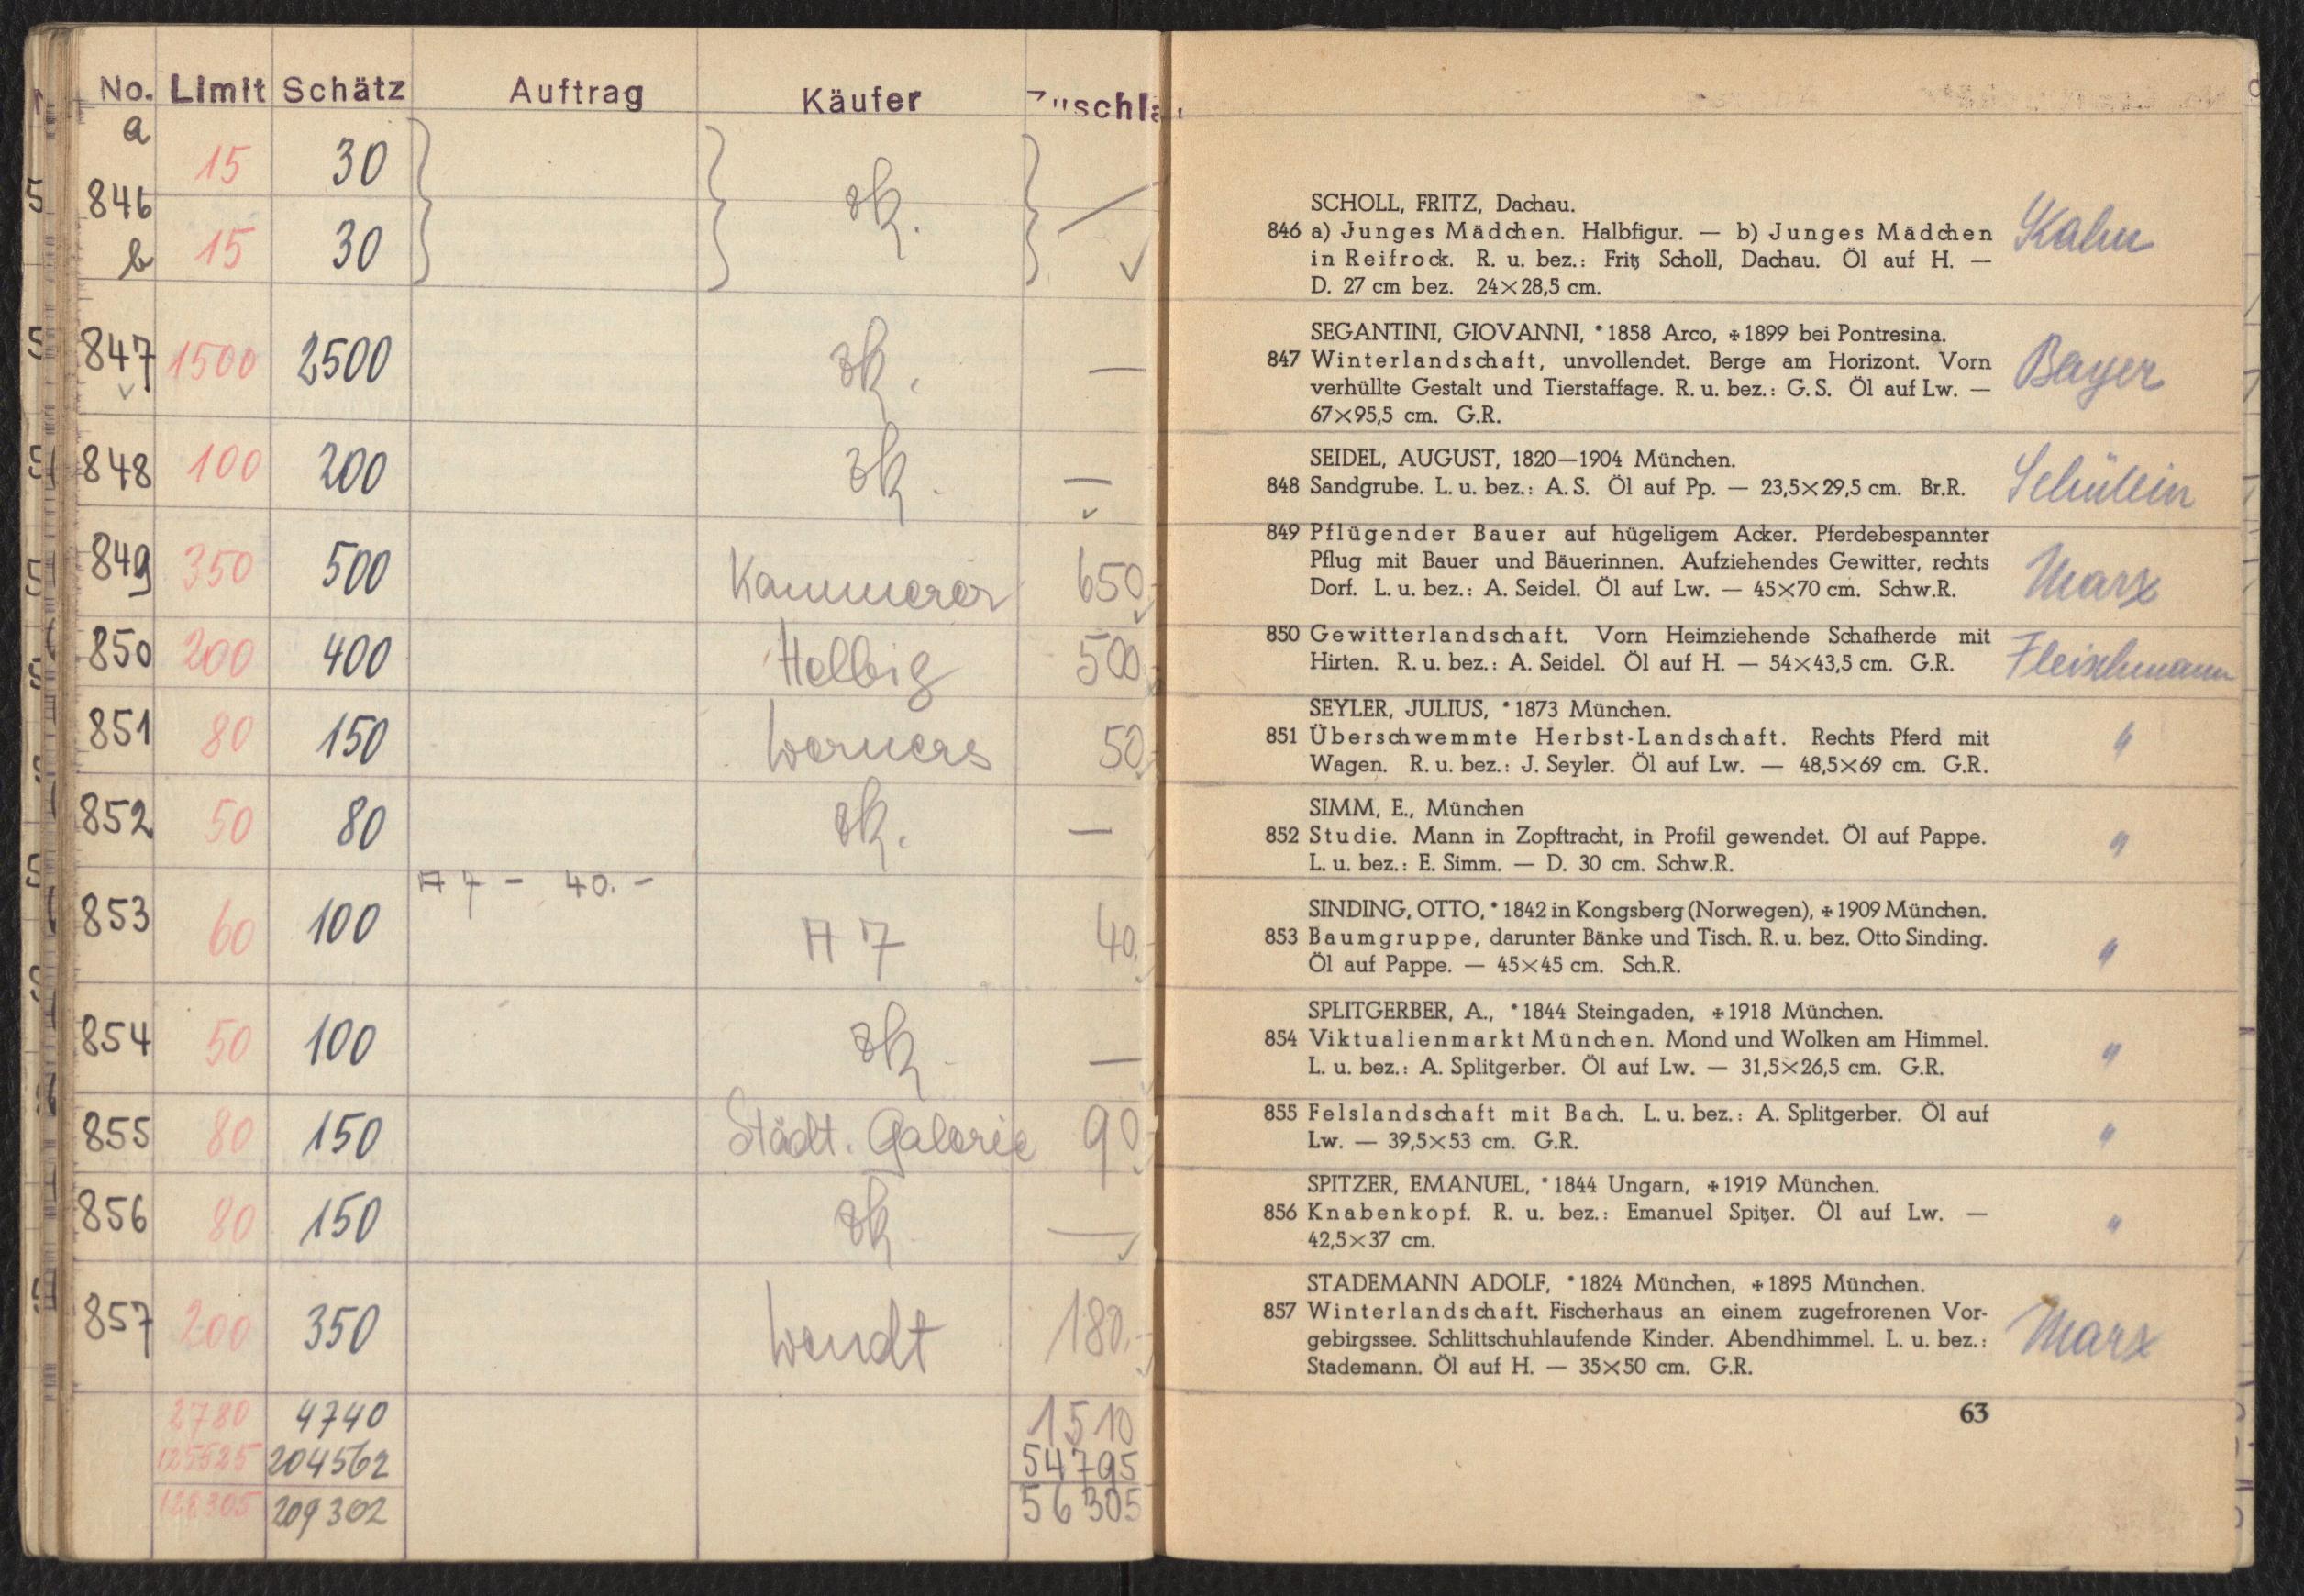 No. Limit Schätz Auftrag Käufer Zuschla
a 15 30
846 zk.
b 15 30
847 1500 2500 zk. —
848 100 200 zk. —
849 350 500 Kammerer 650.-
850 200 400 Helbig 500.-
851 80 150 Werners 50.-
852 50 80 zk. —
A 7 - 40.-
853 60 100 A 7 40.-
854 50 100 zk —
855 80 150 Städt. Galerie 90.-
856 80 150 zk —
857 200 350 Wendt 180.-
2780 4740 1510
125525 204562 54795
128305 209302 56305
SCHOLL, FRITZ, Dachau.
846 a) Junges Mädchen. Halbfigur. — b) Junges Mädchen Kahn
in Reifrock. R. u. bez.: Fritz Scholl, Dachau. Öl auf H. —
D. 27 cm bez. 24×28,5 cm.
SEGANTINI, GIOVANNI, *1858 Arco, +1899 bei Pontresina.
847 Winterlandschaft, unvollendet. Berge am Horizont. Vorn Bayer
verhüllte Gestalt und Tierstaffage. R. u. bez.: G. S. Öl auf Lw. —
67×95,5 cm. G.R.
SEIDEL, AUGUST, 1820—1904 München.
848 Sandgrube. L. u. bez.: A. S. Öl auf Pp. — 23,5×29,5 cm. Br.R. Schülein
849 Pflügender Bauer auf hügeligem Acker. Pferdebespannter
Pflug mit Bauer und Bäuerinnen. Aufziehendes Gewitter, rechts Marx
Dorf. L. u. bez.: A. Seidel. Öl auf Lw. — 45×70 cm. Schw.R.
850 Gewitterlandschaft. Vorn Heimziehende Schafherde mit
Hirten. R. u. bez.: A. Seidel. Öl auf H. — 54×43,5 cm. G.R. Fleischmann
SEYLER, JULIUS, *1873 München.
851 Überschwemmte Herbst-Landschaft. Rechts Pferd mit "
Wagen. R. u. bez.: J. Seyler. Öl auf Lw. — 48,5×69 cm. G.R.
SIMM, E., München
852 Studie. Mann in Zopftracht, in Profil gewendet. Öl auf Pappe. "
L. u. bez.: E. Simm. — D. 30 cm. Schw.R.
SINDING, OTTO, *1842 in Kongsberg (Norwegen), +1909 München.
853 Baumgruppe, darunter Bänke und Tisch. R. u. bez. Otto Sinding. "
Öl auf Pappe. — 45×45 cm. Sch.R.
SPLITGERBER, A., *1844 Steingaden, +1918 München.
854 Viktualienmarkt München. Mond und Wolken am Himmel. "
L. u. bez.: A. Splitgerber. Öl auf Lw. — 31,5×26,5 cm. G.R.
855 Felslandschaft mit Bach. L. u. bez.: A. Splitgerber. Öl auf "
Lw. — 39,5×53 cm. G.R.
SPITZER, EMANUEL, *1844 Ungarn, +1919 München.
856 Knabenkopf. R. u. bez.: Emanuel Spitzer. Öl auf Lw. — "
42,5×37 cm.
STADEMANN ADOLF, *1824 München, +1895 München.
857 Winterlandschaft. Fischerhaus an einem zugefrorenen Vor-
gebirgssee. Schlittschuhlaufende Kinder. Abendhimmel. L. u. bez.: Marx
Stademann. Öl auf H. — 35×50 cm. G.R.
63